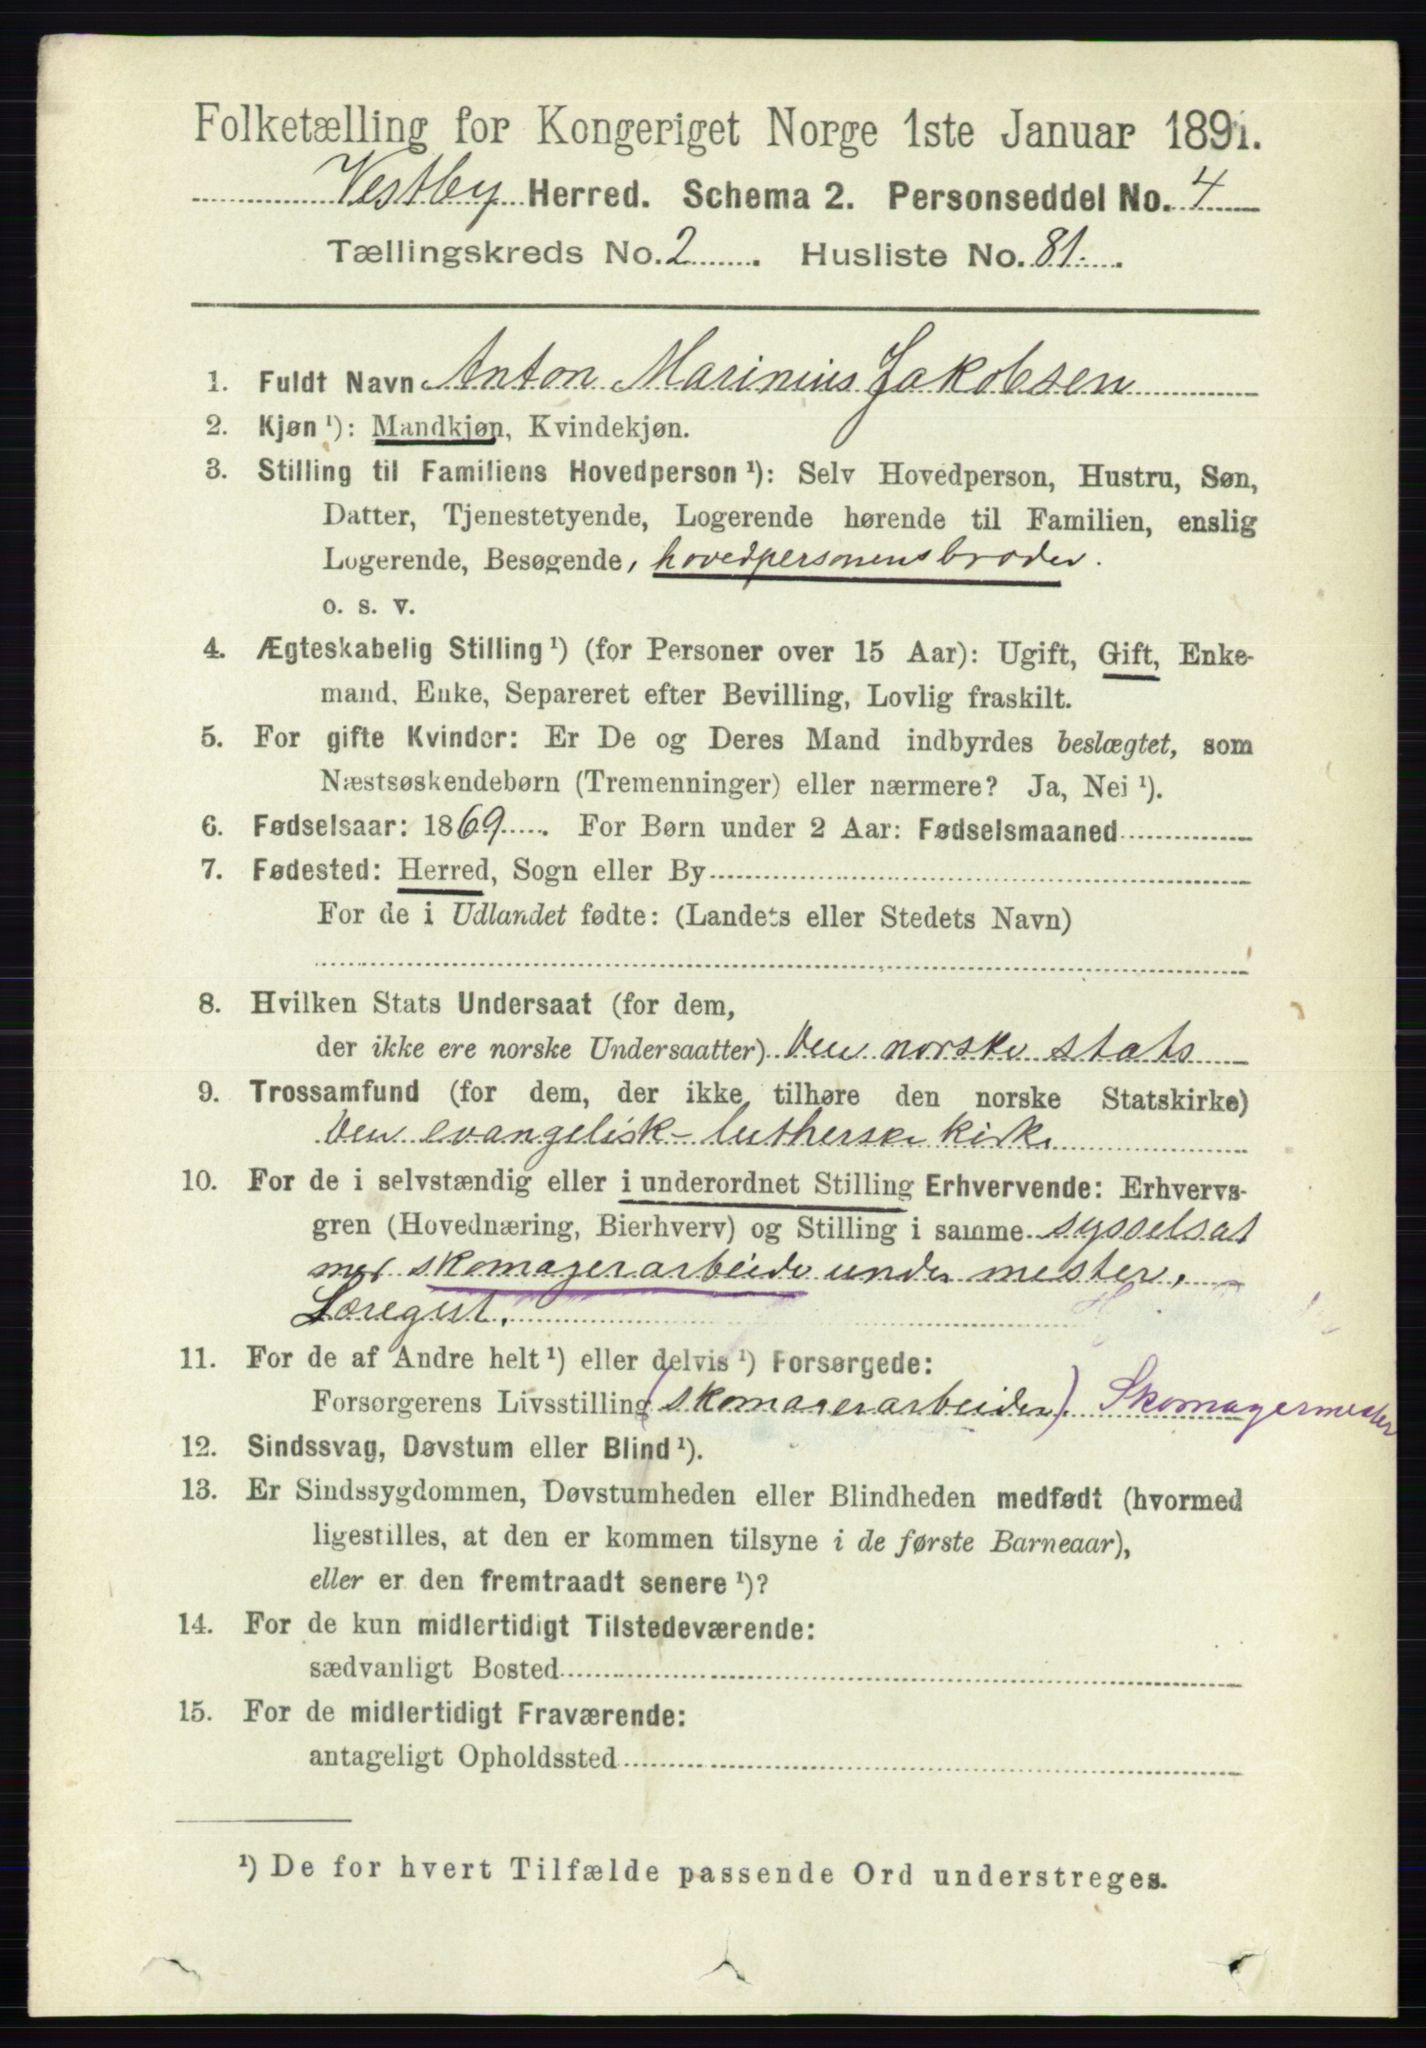 Folketælling for Kongeriget Norge 1ste Januar 1891.
Vestby Herred. Schema 2. Personseddel No. 4
Tællingskreds No. 2 . Husliste No. 81.
1. Fuldt Navn Anton Marinius Jakobsen
2. Kjøn ¹): Mandkjøn, Kvindekjøn.
3. Stilling til Familiens Hovedperson ¹): Selv Hovedperson, Hustru, Søn,
Datter, Tjenestetyende, Logerende hørende til Familien, enslig
Logerende, Besøgende, hovedpersonens broder.
o. s. v.
4. Ægteskabelig Stilling ¹) (for Personer over 15 Aar): Ugift, Gift, Enke-
mand, Enke, Separeret efter Bevilling, Lovlig fraskilt.
5. For gifte Kvinder: Er De og Deres Mand indbyrdes beslægtet, som
Næstsøskendebørn (Tremenninger) eller nærmere? Ja, Nei ¹).
6. Fødselsaar: 1869 . For Børn under 2 Aar: Fødselsmaaned
7. Fødested: Herred, Sogn eller By
For de i Udlandet fødte: (Landets eller Stedets Navn)
8. Hvilken Stats Undersaat (for dem,
der ikke ere norske Undersaatter) Den norske stats
9. Trossamfund (for dem, der ikke tilhøre den norske Statskirke)
Den evangelisk-lutherske kirke
10. For de i selvstændig eller i underordnet Stilling Erhvervende: Erhvervs-
gren (Hovednæring, Bierhverv) og Stilling i samme sysselsat
med skomagerarbeide under mester.
Læregut.
11. For de af Andre helt ¹) eller delvis ¹) Forsørgede:
Forsørgerens Livsstilling (skomagerarbeider) Skomagermester
12. Sindssvag, Døvstum eller Blind ¹).
13. Er Sindssygdommen, Døvstumheden eller Blindheden medfødt (hvormed
ligestilles, at den er kommen tilsyne i de første Barneaar),
eller er den fremtraadt senere ¹)?
14. For de kun midlertidigt Tilstedeværende:
sædvanligt Bosted
15. For de midlertidigt Fraværende:
antageligt Opholdssted
¹) De for hvert Tilfælde passende Ord understreges.